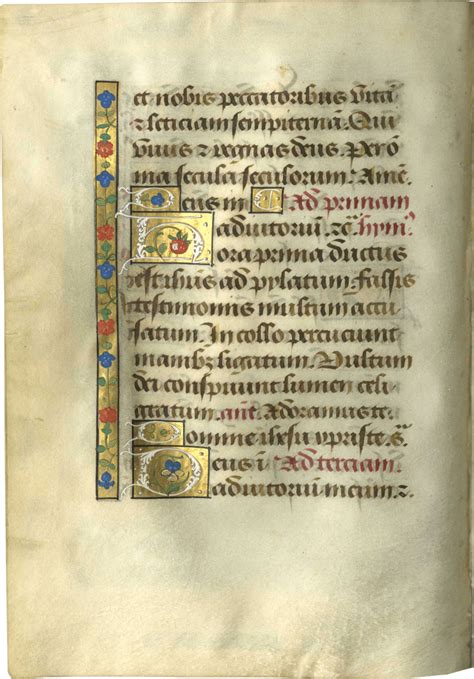 et nobis peccatoribus vitā
⁊ leticiam sempiternā. Qui
viuis ⁊ regnas deus. Per oīa
secula seculorum. Amē.
Deus in Ad primam
adiutoriū. ⁊c̄. hym̄.
Hora prima ductus
est ibus ad pylatum. falsis
testimoniis multum accu
satum. In collo percuciunt
manibꝫ ligatum. Vultum
dei conspuunt lumen celi
gratum. ant̄. Adoramus te
Domine ihesu xp̄riste. ꝟ.
Deus ī Ad terciam.
adiutoriū meum. ⁊.